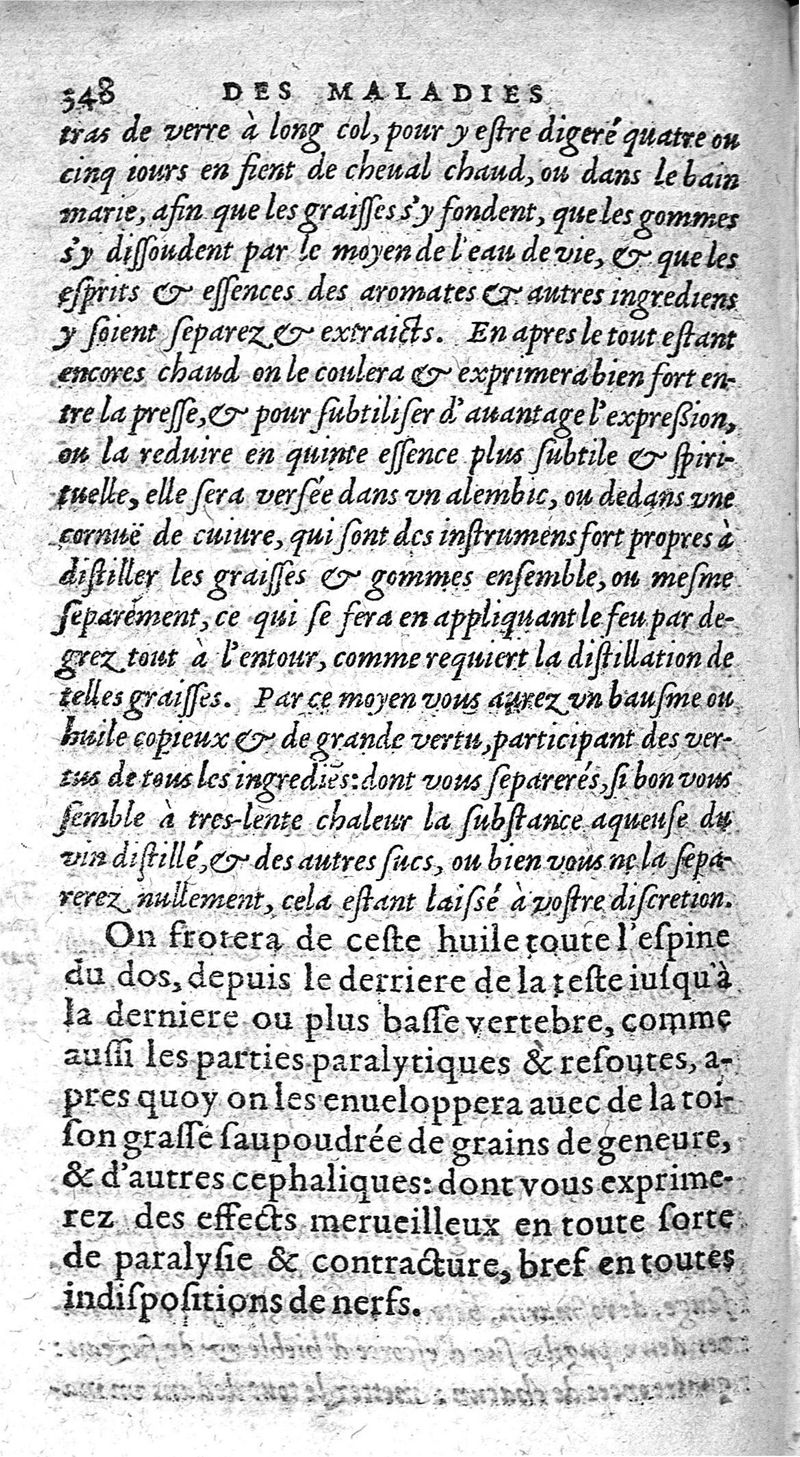 348 DES MALADIES
tras de verre à long col, pour y eſtre digeré quatre ou
cinq iours en fient de cheual chaud, ou dans le bain
marie, afin que les graiſſes s'y fondent, que les gommes
s'y diſſoudent par le moyen de l'eau de vie, & que les
eſprits & eſſences des aromates & autres ingrediens
y ſoient ſeparez & extraicts. En apres le tout eſtant
encores chaud on le coulera & exprimera bien fort en-
tre la preſſe, & pour ſubtiliſer d'auantage l'expreßion,
ou la reduire en quinte eſſence plus ſubtile & ſpiri-
tuelle, elle ſera verſée dans vn alembic, ou dedans vne
cornuë de cuiure, qui ſont des inſtrumens fort propres à
diſtiller les graiſſes & gommes enſemble, ou meſme
ſeparément, ce qui ſe fera en appliquant le feu par de-
grez tout à l'entour, comme requiert la diſtillation de
telles graiſſes. Par ce moyen vous aurez vn bauſme ou
huile copieux & de grande vertu, participant des ver-
tus de tous les ingrediēs: dont vous ſeparerés, ſi bon vous
ſemble à tres-lente chaleur la ſubſtance aqueuſe du
vin diſtillé, & des autres ſucs, ou bien vous ne la ſepa-
rerez nullement, cela eſtant laiſſé à voſtre diſcretion.
On frotera de ceſte huile toute l'eſpine
du dos, depuis le derriere de la teſte iuſqu'à
la derniere ou plus baſſe vertebre, comme
auſſi les parties paralytiques & reſoutes, a-
pres quoy on les enueloppera auec de la toi-
ſon graſſe ſaupoudrée de grains de geneure,
& d'autres cephaliques: dont vous exprime-
rez des effects merueilleux en toute ſorte
de paralyſie & contracture, bref en toutes
indiſpoſitions de nerfs.